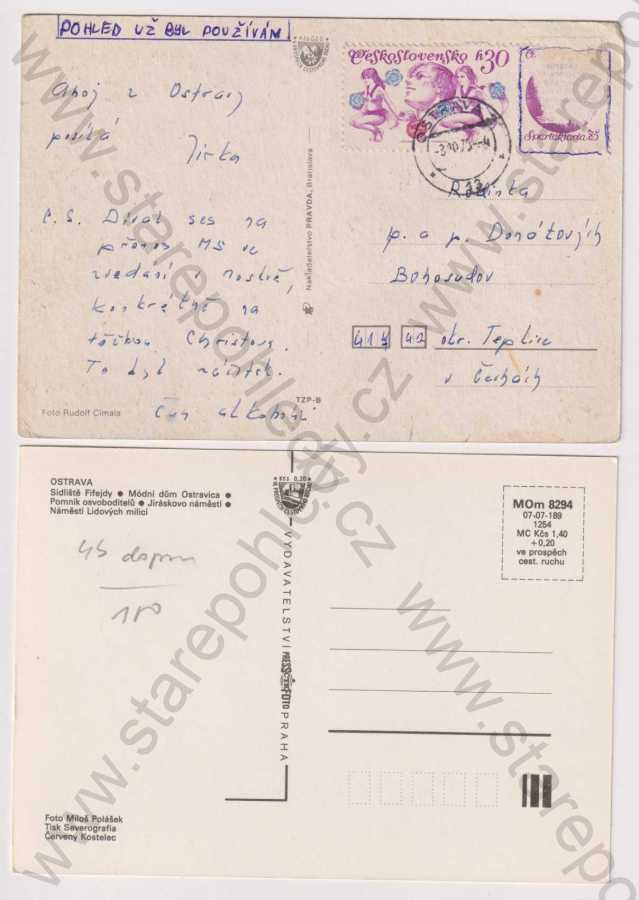 POHLED UŽ BYL POUŽÍVÁM
Československo h30
Č.
Spartakiáda 75
OSTRAVA
Ahoj z Ostravy
posílá
Jirka
Č.S. Díval ses na
přenos MS ve
zvedání v Moskvě,
konkrétně na
Christova.
To byl
Foto Rudolf Cimala
TZP-B
Nakladatelstvo PRAVDA, Bratislava
Rodinka
p. a p. Donátových
Bohosudov
417 42
okr. Teplice
v Čechách
OSTRAVA
Sídliště Fifejdy ● Módní dům Ostravica ●
Pomník osvoboditelů ● Jiráskovo náměstí ●
Náměstí Lidových milicí
45 dopor
180
KČS 0,20
VYDAVATELSTVÍ
PRAHA
MOm 8294
07-07-189
1254
MC Kčs 1,40
+0,20
ve prospěch
cest. ruchu
Foto Miloš Polášek
Tisk Severografia
Červený Kostelec
www.starepohledy.cz
www.starepohledy.cz
www.starepohledy.cz